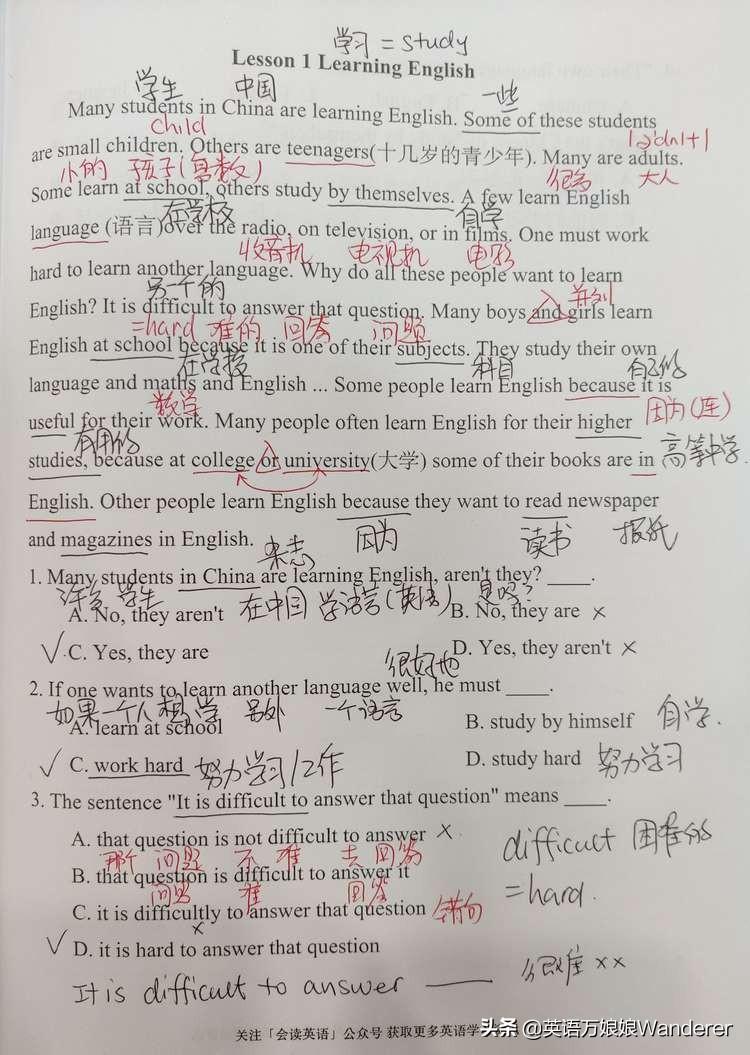 学习 = study
Lesson 1 Learning English
学生 中国 一些
Many students in China are learning English. Some of these students
child
are small children. Others are teenagers(十几岁的青少年). Many are adults.
小的 孩子(复数) 很多 大人
Some learn at school, others study by themselves. A few learn English
在学校 自学
language (语言)over the radio, on television, or in films. One must work
收音机 电视机 电影
hard to learn another language. Why do all these people want to learn
另一个的 并列
English? It is difficult to answer that question. Many boys and girls learn
=hard 难的 回答 问题
English at school because it is one of their subjects. They study their own
在学校 科目 自己的
language and maths and English ... Some people learn English because it is
数学
useful for their work. Many people often learn English for their higher 因为(连)
有用的
studies, because at college or university(大学) some of their books are in 高等中学.
English. Other people learn English because they want to read newspaper
and magazines in English. 因为 读书 报纸
杂志
1. Many students in China are learning English, aren't they? ____.
许多 学生 在中国 学语言(英语) 是吗?
A. No, they aren't B. No, they are ×
✓ C. Yes, they are D. Yes, they aren't ×
很好地
2. If one wants to learn another language well, he must ____.
如果一个人想学 另外 一个语言
A. learn at school B. study by himself 自学.
✓ C. work hard 努力学习/工作 D. study hard 努力学习
3. The sentence "It is difficult to answer that question" means ____.
A. that question is not difficult to answer ×
那个 问题 不 难 去 回答
difficult 困难的
B. that question is difficult to answer it
问题 难 回答
=hard.
C. it is difficultly to answer that question 错句
×
✓ D. it is hard to answer that question
It is difficult to answer ____ 很难××
关注「会读英语」公众号 获取更多英语学
头条 @英语万娘娘Wanderer